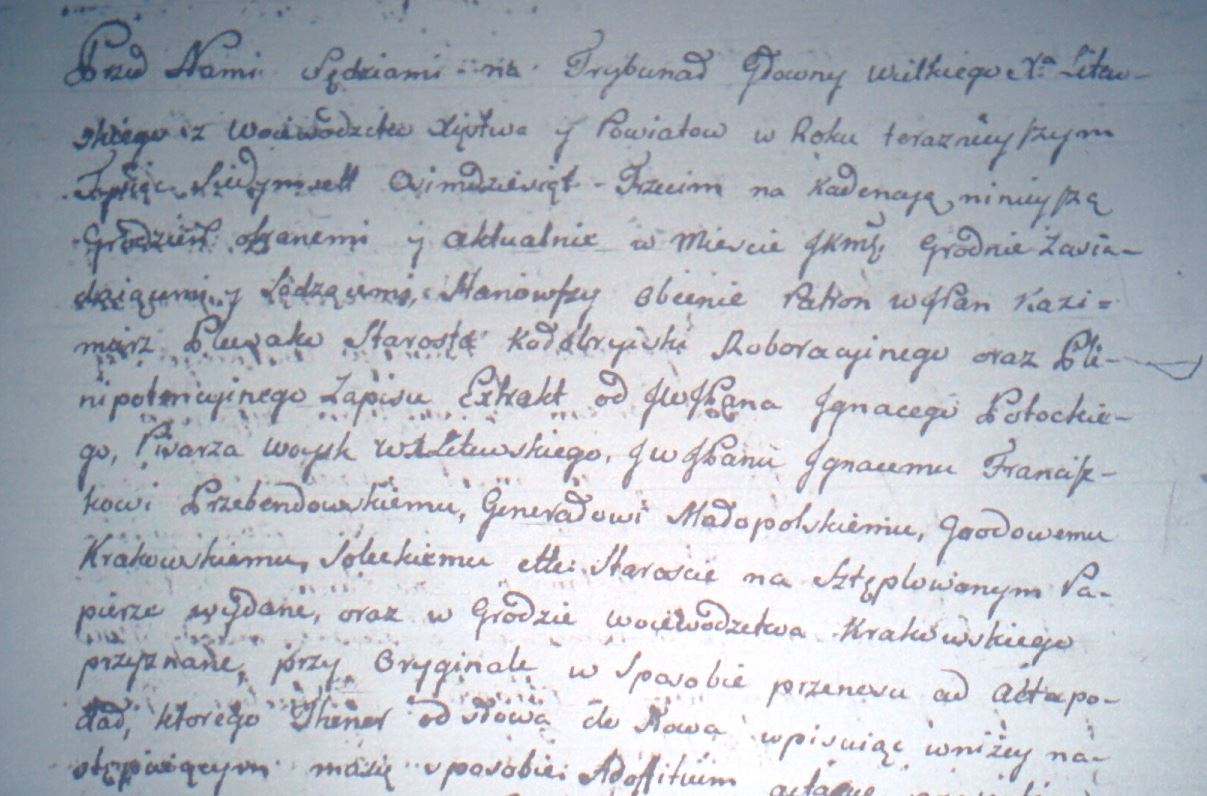 Przed Nami Sędziami na Trybunał Głowny wielkiego Xa Litew-
skiego z Woiewodztw Xięstwa y Powiatow w Roku teraznieyszym
Tysiąc Siedymset Osimdziesiąt Trzecim na Kadencyą ninieyszą
Grodzień. obranemi y aktualnie w Miescie JKMs̃. Grodnie Zasia-
daiącemi y Sądzącemi, Stanowszy obecnie Patron WJPan Kazi=
mierz Plewako Starosta Roboracyinego oraz Ple-
nipotencyinego Zapisu Extrakt od JWJPana Jgnacego Potockie-
go, Pisarza Woysk WXLitewskiego, JWJPanu Jgnacemu Francisz-
kowi Przebendowskiemu, Generałowi Małopolskiemu, Grodowemu
Krakowskiemu, Soleckiemu ettc: Staroscie na Sztęplowanym Pa-
pierze wydane, oraz w Grodzie woiewodztwa Krakowskiego
przyznane, przy Oryginale w Sposobie przenosu ad Acta po-
dał, ktorego Thenor od słowa do słowa wpisuiąc w niżey na-
stępuiącym sposobie: